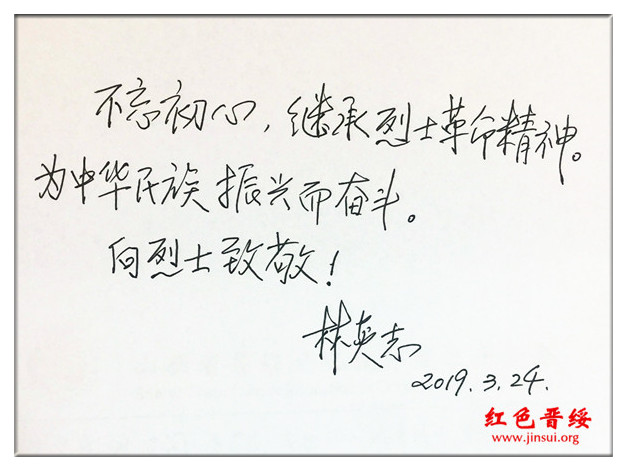 不忘初心，继承烈士革命精神。
为中华民族振兴而奋斗。
向烈士致敬！
林英志
2019.3.24.
红色晋绥
www.jinsui.org